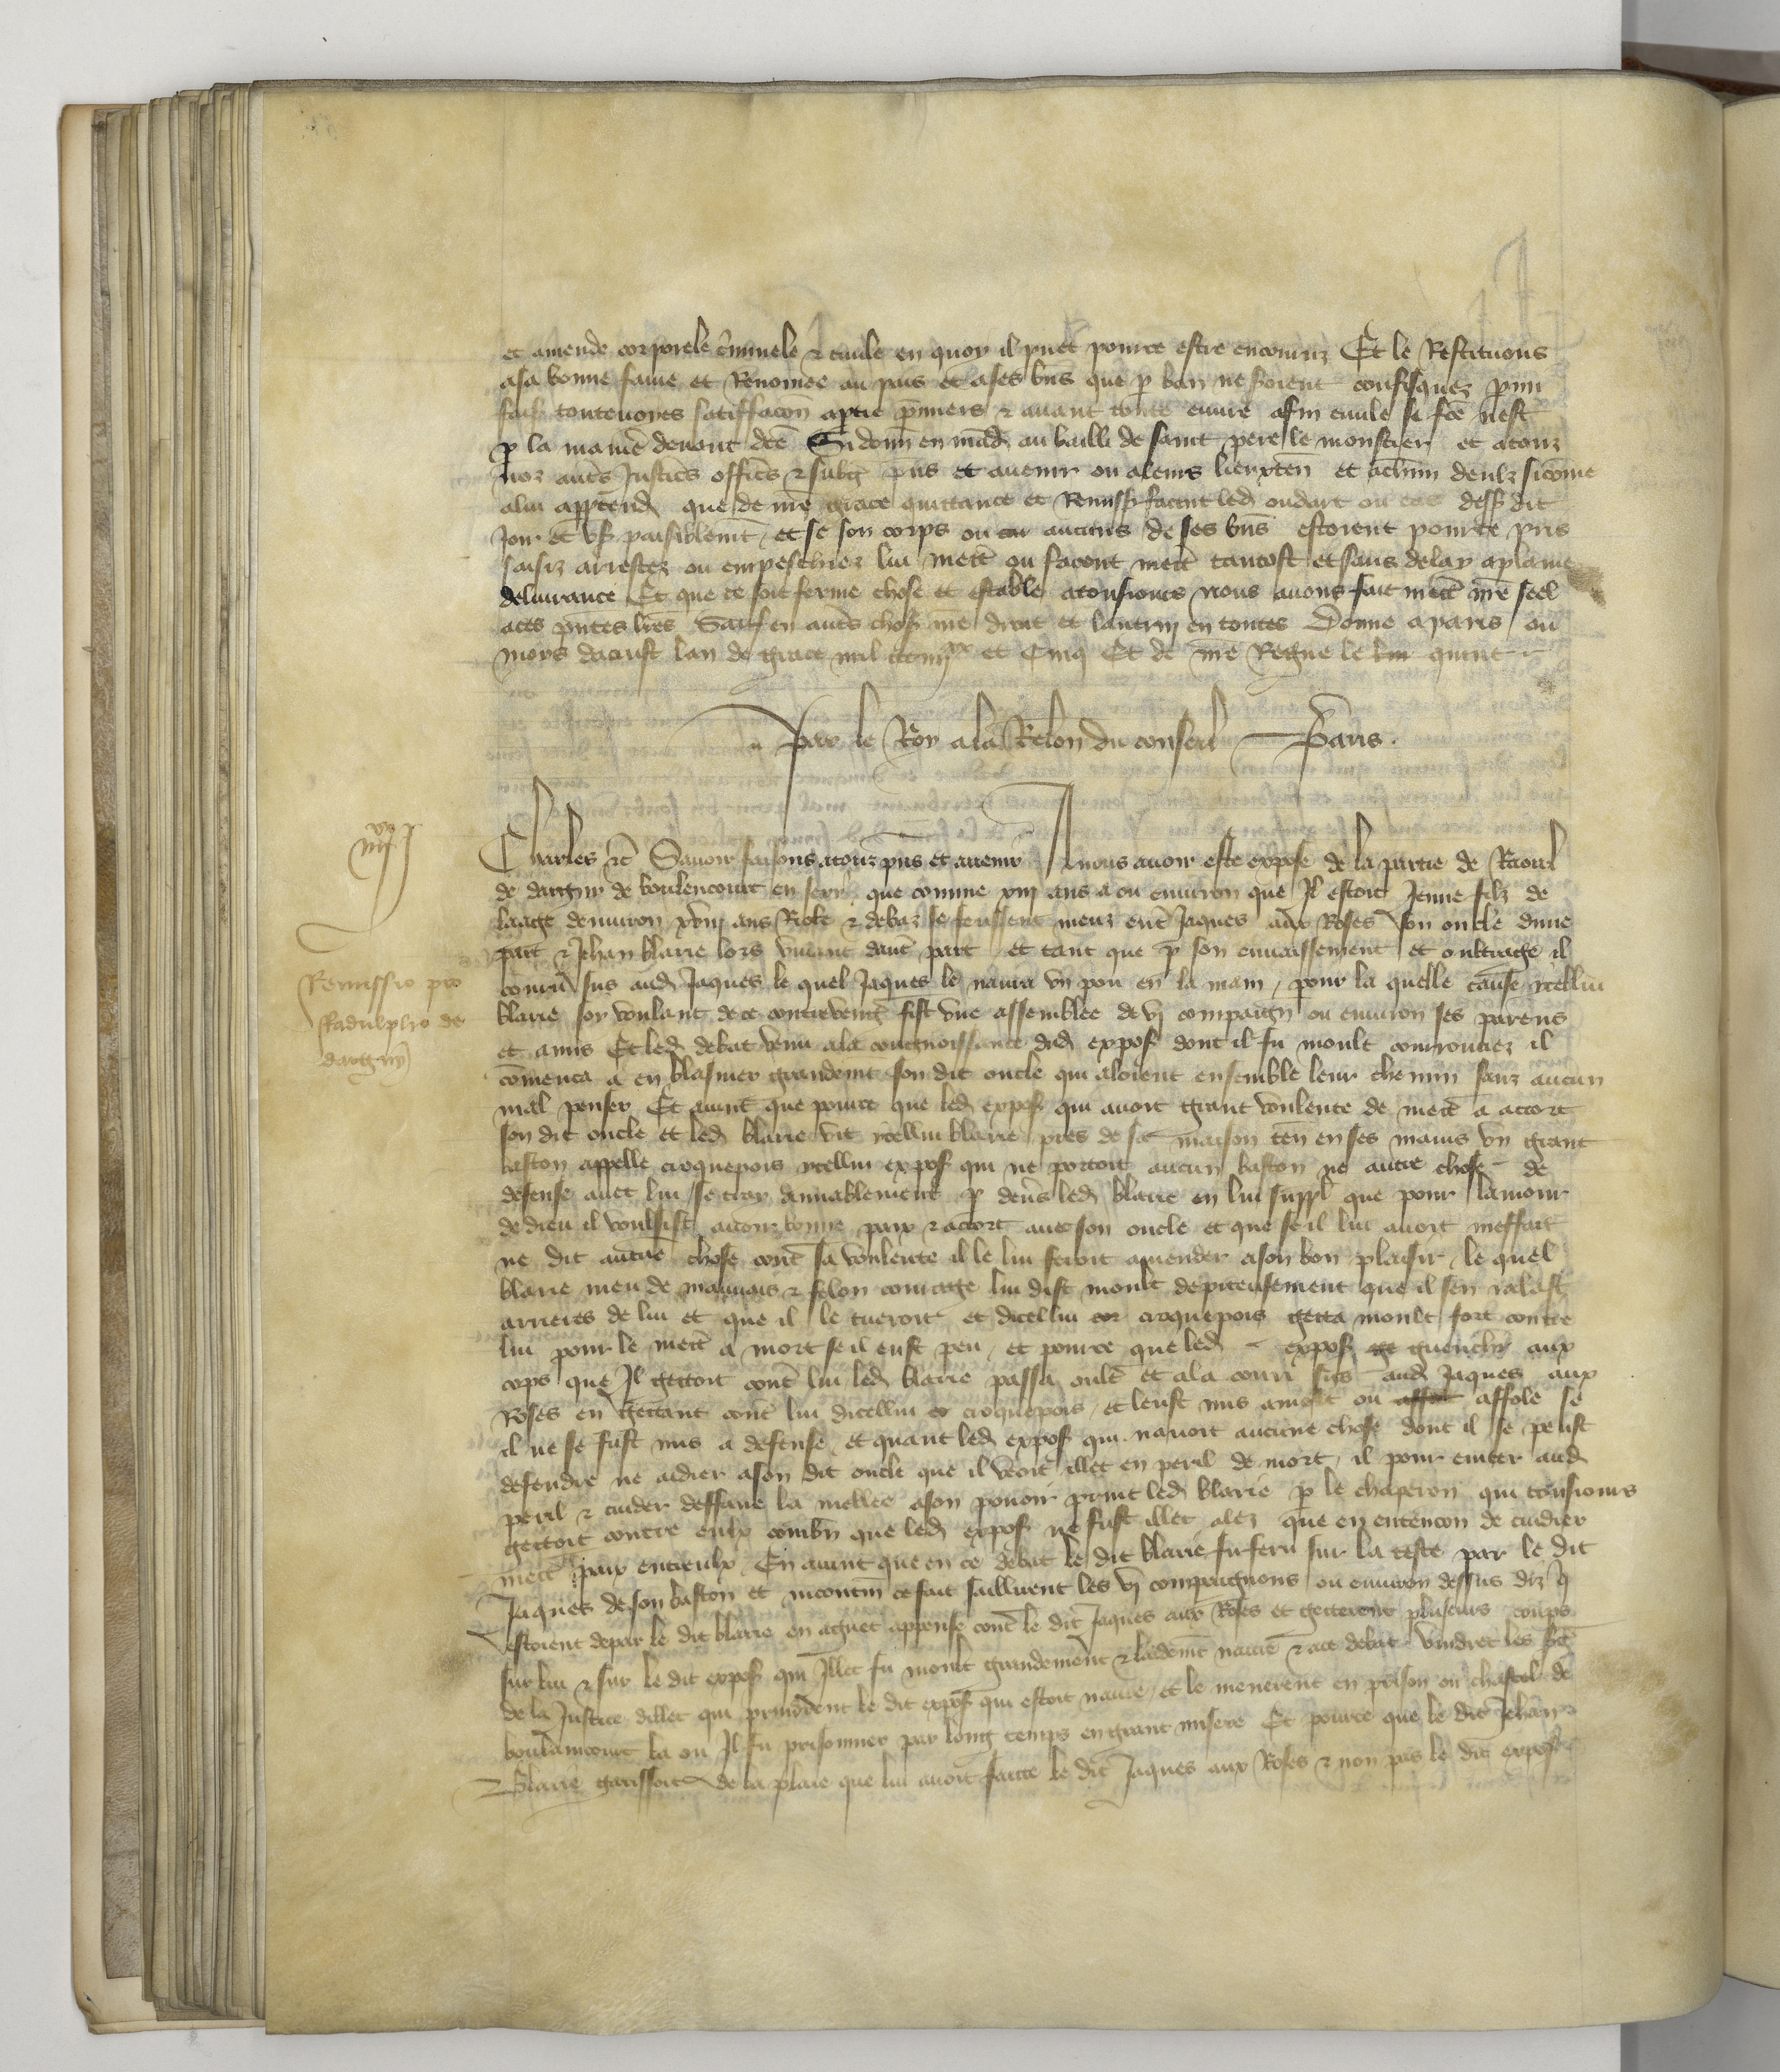 et amende corporele c̃iminele & ciuile en quoy il puet pource estre encouruz Et le Restituons
a sa bonne fame et Renomee au pais et a ses bñs que p̱ ban ne soient confisquez p̱mi
faiſ touteuoyes satiffacõn a p̱tie p̃miers & auant toute euure a fin ciuile se fc̃e nest
p̱ la manie᷑ deuant dc̃e Si donñ en mãd᷑ au bailli de saint pere le monstier et a touz
noz aut᷑s Justic᷑s offic᷑s & subg᷑ p̃ns et auenir ou a leurs lieuxteñ et a ch̃un deulz si cõme
a lui app̱tend᷑ que de nr̃e grace quittance et Remissſ facent led᷑ oudart ou cas dessſ dit
Joir et vsſ paisiblemt̃ et se son corps ou aucuns de ses bñs estoient pource pris
saisiz arrestez ou empeschiez lui mett᷑ ou facent mett᷑ tantost et sans delay a plaine
deliurance Et que ce soit ferme chose et estable a tousiours nous auons fait mett᷑ nr̃e seel
a ces p̃ntes lr̃es Sauf en aut᷑s chosſ nr̃e droit et lautruy en toutes Donne a paris ou
moys daoust lan de grace mil ccc iiijxx et Cinq Et de nr̃e Regne le quint
par le Roy a la Relon du conseil p̃aris.
iiijxx j
Charles &c̃ Sauoir faisons a touz p̃ns et auenir A nous auoir este expose de la partie de Raoul
de dargny de boulencourt en serẽ que comme xiij ans a ou enuiron que Il estoit Jeune filz de
laage denuiron xviij ans Riote & debaz se feussent meuz ent᷑ Jaques aux Roses son oncle dune
part & Jehan blarie lors viuant daut᷑ part et tant que p̱ son enuaissement et oultrage il
couru sus aud᷑ Jaques le quel Jaques le naura vn pou en la main / pour la quelle cause ycellui
Remissio pro
Radulpho de
dargny
blarie soy voulant de ce contreuengſ fist vne assemblee de vj compaigñ ou enuiron ses parens
et amis Et led᷑ debat venu a la congnoissance dud᷑ exposſ dont il fu moult courrouciez il
cõmenca a en blasmer grandemt̃ son dit oncle qui aloient ensemble leur chemin sanz aucun
mal penser Et auint que pource que led᷑ exposſ qui auoit grant voulente de mett᷑ a accort
son dit oncle et led᷑ blarie vit ycellui blarie pres de sa maison teñ en ses mains vn grant
baston appelle croquepois ycellui exposſ qui ne portoit aucun baston ne autre chose de
defense auec lui se tray amiablement p̱ deu᷑s led᷑ blarie en lui suppl᷑ que pour lamour
de dieu il voulsist auoir bonne paix & accort auec son oncle et que se il lui auoit meffait
ne dit aucune chose cont᷑ sa voulente il le lui feroit amender a son bon plaisir / le quel
blarie meu de mauuais & felon courage lui dist moult depiteusement que il sen ralast
arrieres de lui et que il le tueroit et dicellui croquepois getta moult fort contre
lui pour le mett᷑ a mort se il eust peu / et pource que led᷑ exposſ guenchy aux
cops que Il gettoit cont᷑ lui led᷑ blarie passa oult᷑ et ala courir sus aud᷑ Jaques aux
Roses en gettant cont᷑ lui dicellui croquepois / et leust mis a mort ou affole se
il ne se fust mis a defense / et quant led᷑ exposſ qui nauoit aucune chose dont il se peust
defendre ne aidier a son dit oncle que il veoit illec en peril de mort / il pour euiter aud᷑
peril & cuider deffaire la mellee a son pouoir print led᷑ blarie p̱ le chaperon qui tousiours
gettoit contre eulx combñ que led᷑ exposſ ne fust illec alez que en entencon de cuidier
mett᷑ paix entreulx En auint que en ce debat le dit blarie fu feru sur la teste par le dit
Jaques de son baston et incontinñ ce fait saillirent les vj compaignons ou enuiron dessus diz q̃
estoient depar le dit blarie en aguet appense cont᷑ le dit Jaques aux Roses et getterent plusieurs coups
sur lui & sur le dit exposſ qui Illec fu moult grandement & laidemt̃ naure & a ce debat vindrẽt les gẽs
de la Justice dillec qui prindrent le dit exposſ qui estoit naure / et le menerent en prison ou chastel de
boulaincourt la ou Il fu prisonnier par long temps en grant misere Et pource que le dit Jehan
Blarie garissoit de la plaie que lui auoit faicte le dit Jaques aux Roses & non pas le dit exposſ